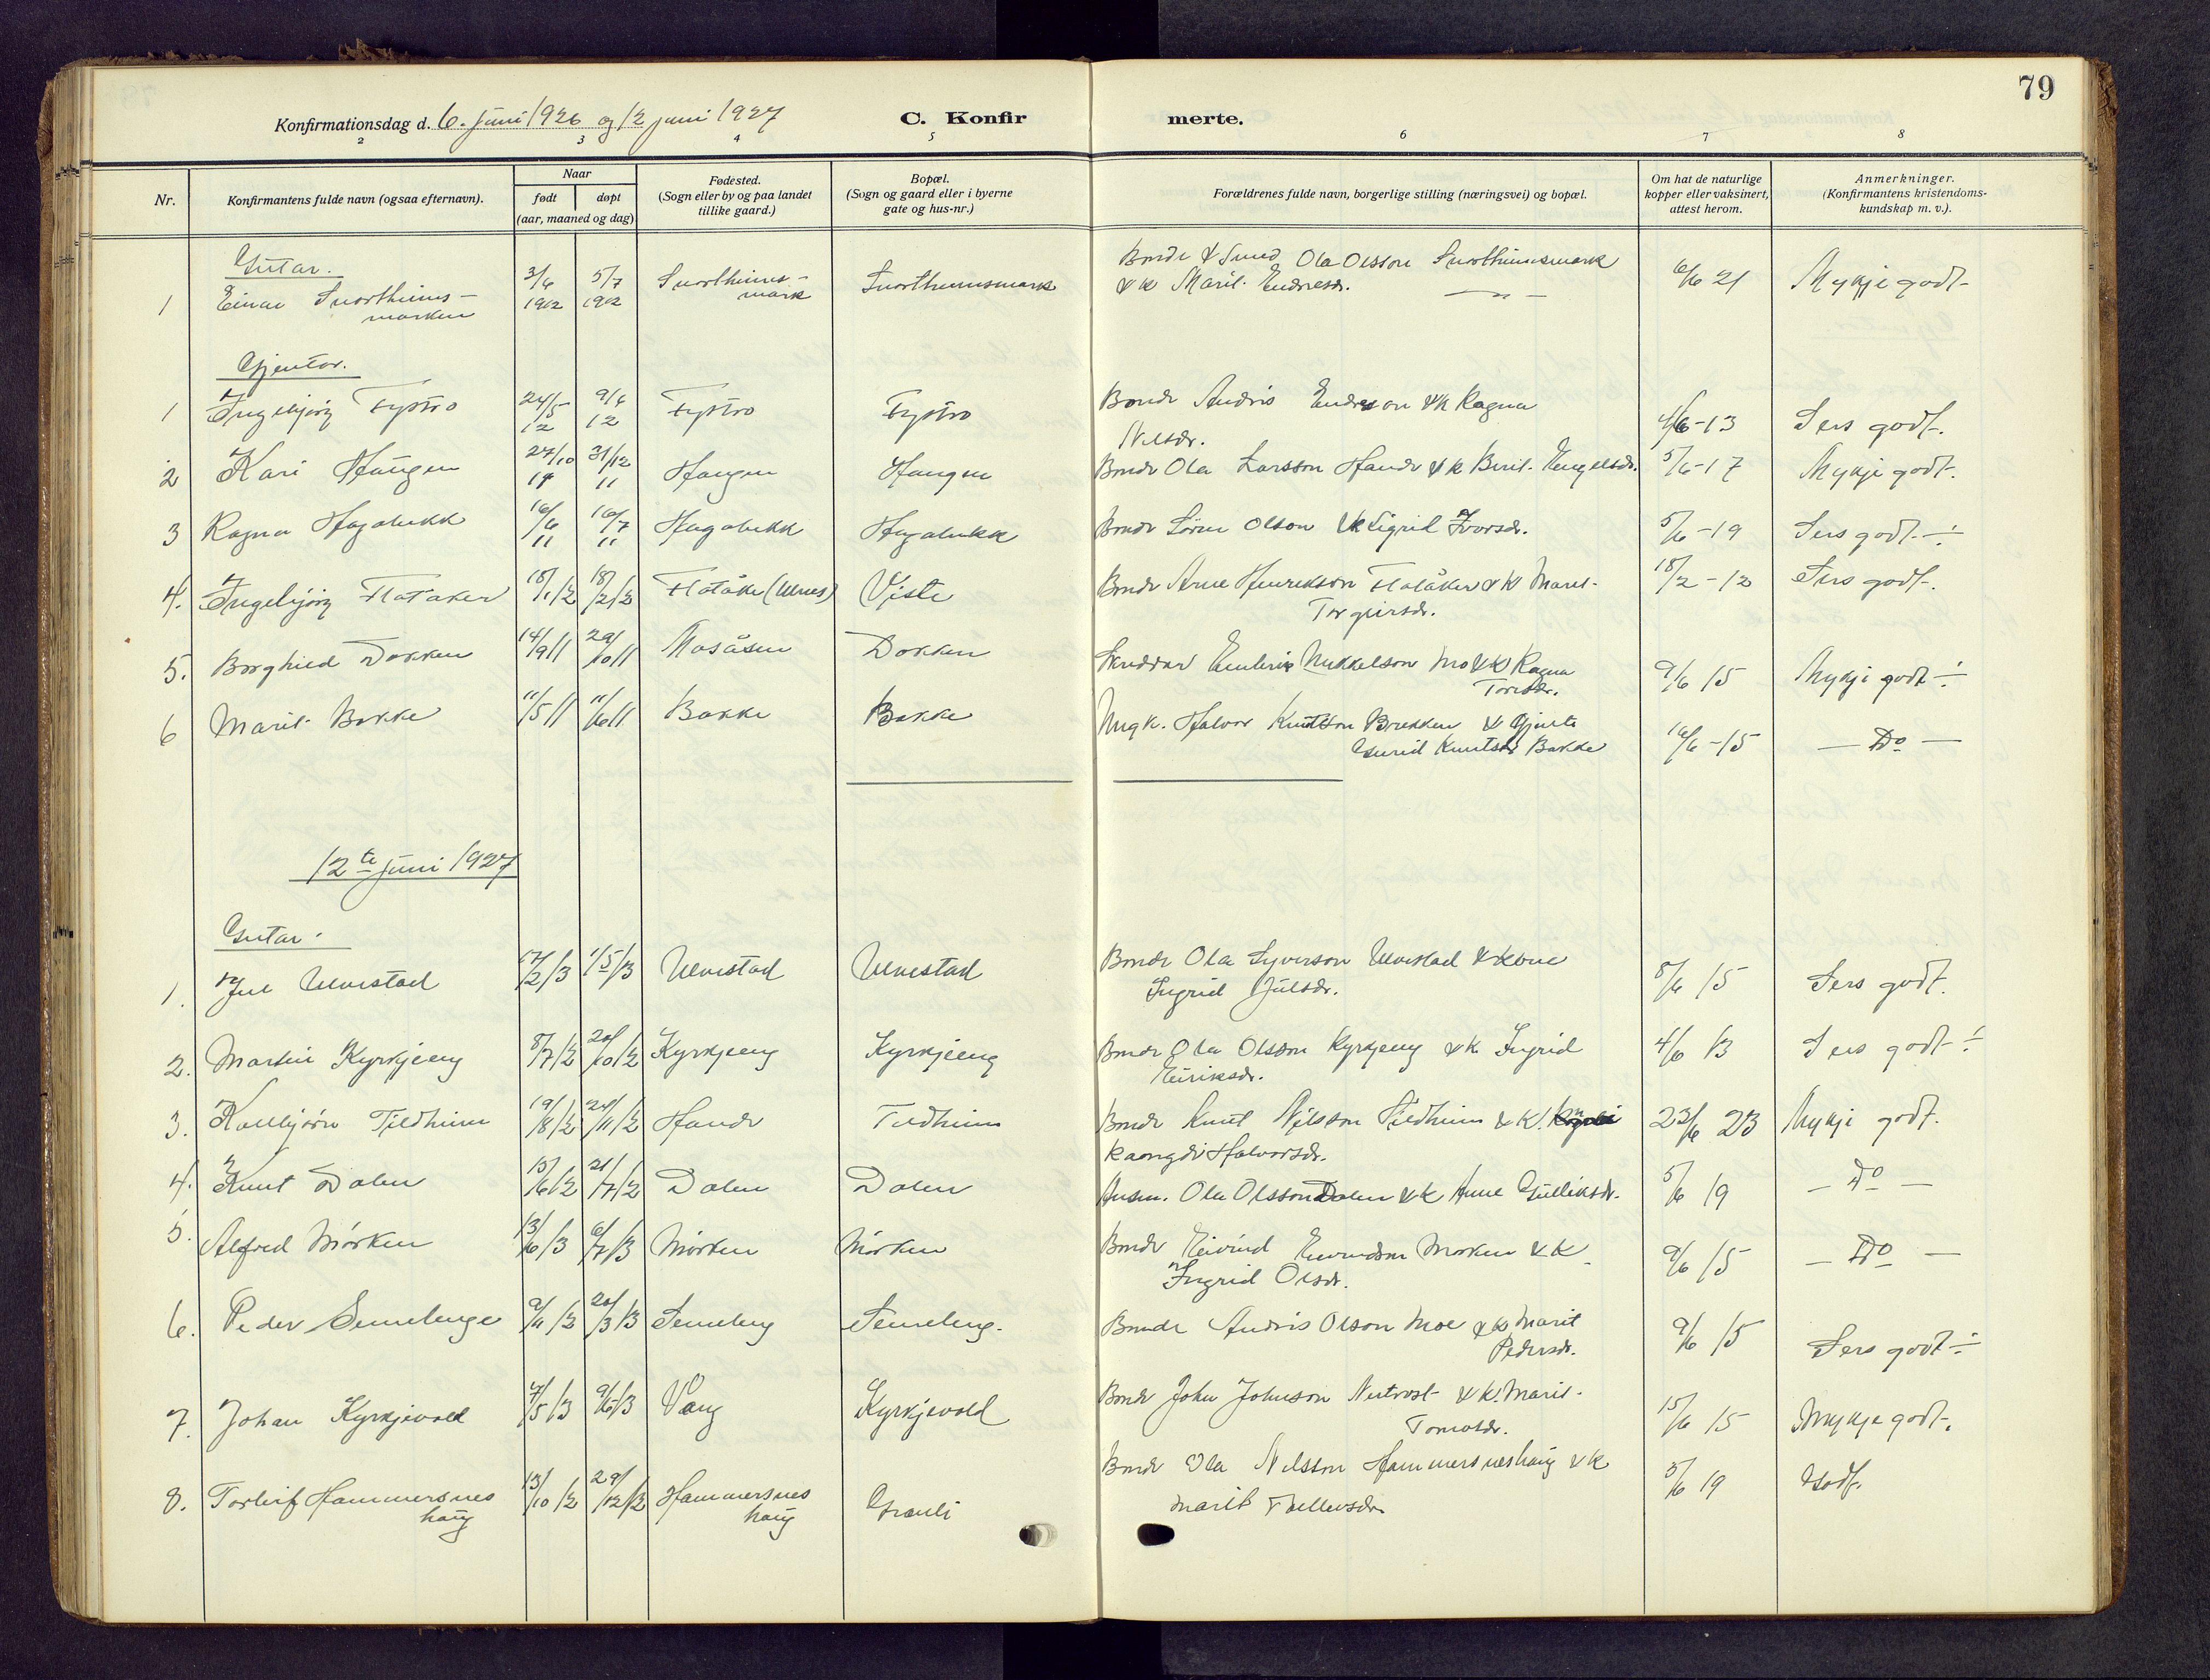 79
Konfirmationsdag d. 6. juni 1926 og 12 juni 1927 C. Konfir merte.
2 3 4 5 6 7 8
Nr. Konfirmantens fulde navn (ogsaa efternavn). Naar født døpt (aar, maaned og dag) Fødested. (Sogn eller by og paa landet tillike gaard.) Bopæl. (Sogn og gaard eller i byerne gate og hus-nr.) Forældrenes fulde navn, borgerlige stilling (næringsvei) og bopæl. Om hat de naturlige kopper eller vaksinert, attest herom. Anmerkninger. (Konfirmantens kristendoms-kundskap m. v.).
Gutar.
1 Einar 1912 1912 Ola Olsson 6/6 21 Mykje godt
& k Marit Endresdr.
Gjentor.
1 Ingebjørg Fystro 24/5 12 9/6 12 Fystro Fystro Bonde Andris Endreson & k Ragna 4/6-13 Sers godt.
Nilsdr.
2 Kari Haugen 27/10 11 31/12 11 Haugen Haugen Bonde Ola Larsson Hande & k Berit Engelsdr. 5/6-17 Mykje godt.
3 Ragna Hagabekk 16/6 11 16/7 11 Hagabekk Hagabekk Bonde Søren Olson & k Sigrid Ivorsdr. 5/6-19 Sers godt ÷
4. Ingebjørg Flatåker 18/1 12 18/2 12 Flatåker (Ulnes) Viste Bonde Arne Henrekson Flatåker & k Marit 18/2-12 Sers godt.
Torgeirsdr.
5. Borghild Dokken 14/9 11 29/10 11 Mosåsen Dokken Mikkelson Mo & k Ragna 9/6 15 Mykje godt ÷
6 Marit Bakke 11/5 11 11/6 11 Bakke Bakke Ungk. Halvor Knutson Brekken & Gjenta 16/6-15 — Do —
Gurid Knutsdr Bakke
12te juni 1927
Gutar.
1. Jul Ulvestad 17/2 13 1/5 13 Ulvestad Ulvestad Bonde Ola Syverson Ulvestad & kone 8/6 15 Sers godt.
Ingrid Julsdr.
2. Martin Kyrkjeeng 8/7 12 20/10 12 Kyrkjeeng Kyrkjeeng Bonde Ola Olsson Kyrkjeeng & k Ingrid 4/6 13 Sers godt ÷
Eiriksdr.
3. Kolbjørn Tildheim 19/8 12 24/11 12 Hande Tildheim Bonde Knut Nilsson Tildheim & k. 23/6 23 Mykje godt.
Halvorsdr.
4. Knut Dalen 15/6 12 21/7 12 Dalen Dalen Husm. Ola Olsson Dalen & k Anne Gulliksdr. 5/6 19 — Do —
5. Alfred Mørken 13/6 13 6/7 13 Mørken Mørken Bonde Eivind Eivindson Mørken & k 9/6 15 — Do —
Ingrid Olsdr.
6. Peder Semelenge 20/3 13 Semeleng Semeleng. Bonde Andris Olson Moe & k Marit 9/6 15 Sers godt ÷
Pedersdr.
7. Johan Kyrkjevold 7/5 13 9/6 13 Vang Kyrkjevold Bonde John Johnson & k. Marit 15/6 15 Mykje godt.
Tomosdr.
8. Torleif Hammersnes 13/10 12 29/12 12 Hammersnes Bonde Ola Nilsson Hammersneshaug & k 5/6 19 Godt.
haug haug Grauli Marit Tollevsdr.